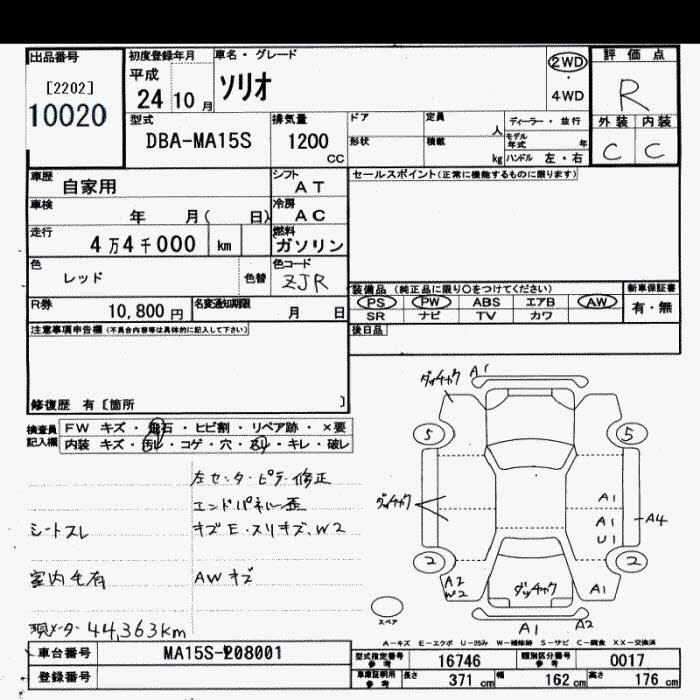 出品番号
[2202]
10020
初度登録年月
平成
24 年 10 月
車名・グレード
ソリオ
2WD
4WD
評価点
R
外装 内装
C C
型式
DBA-MA15S
排気量
1200
CC
ドア
定員
人
形状
積載
kg
ディーラー・並行
モデル年式 年
ハンドル 左・右
車歴
自家用
シフト
AT
セールスポイント(正常に機能するものに限ります)
車検
年 月( 日)
冷房
AC
走行
4万4千000 km
燃料
ガソリン
色
レッド
色替
色コード
ZJR
装備品 (純正品に限り○をつけてください)
新車保証書
PS PW ABS エアB AW
SR ナビ TV カワ
有・無
R券
10,800 円
名変通知期限
月 日
後日品
注意事項申告欄(不具合内容等は具体的に記入して下さい)
修復歴 有[箇所 ]
検査員記入欄
FW キズ・飛石・ヒビ割・リペア跡・×要
内装 キズ・汚レ・コゲ・穴・スレ・キレ・破レ
左センターピラー修正
エンドパネル歪
シートスレ
キズE・スリキズ、W2
室内毛有
AWキズ
現メーター 44,363km
ダッチャク A1
5 5
ダッチャク
A1
A1
U1
A4
2 2
A2
W2
ダッチャク
A1
スペア
A1 A2
A-キズ E-エクボ U-凹み W-補修跡 S-サビ C-腐食 XX-交換済
車台番号
MA15S-208001
登録番号
型式指定番号
参考
16746
類別区分番号
参考
0017
車庫証明用
参考
長さ 371 cm 幅 162 cm 高さ 176 cm